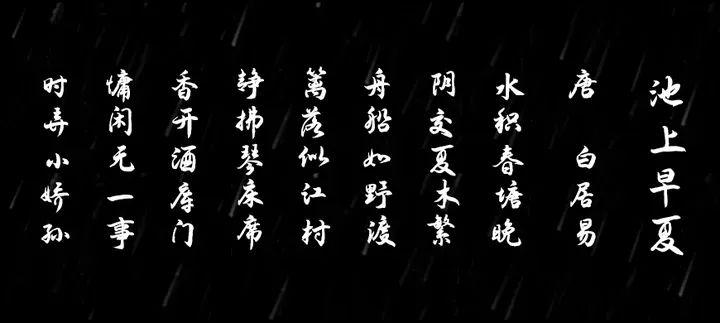 池上早夏
唐 白居易
水积春塘晚
阴交夏木繁
舟船如野渡
篱落似江村
静拂琴床席
香开酒库门
慵闲无一事
时弄小娇孙